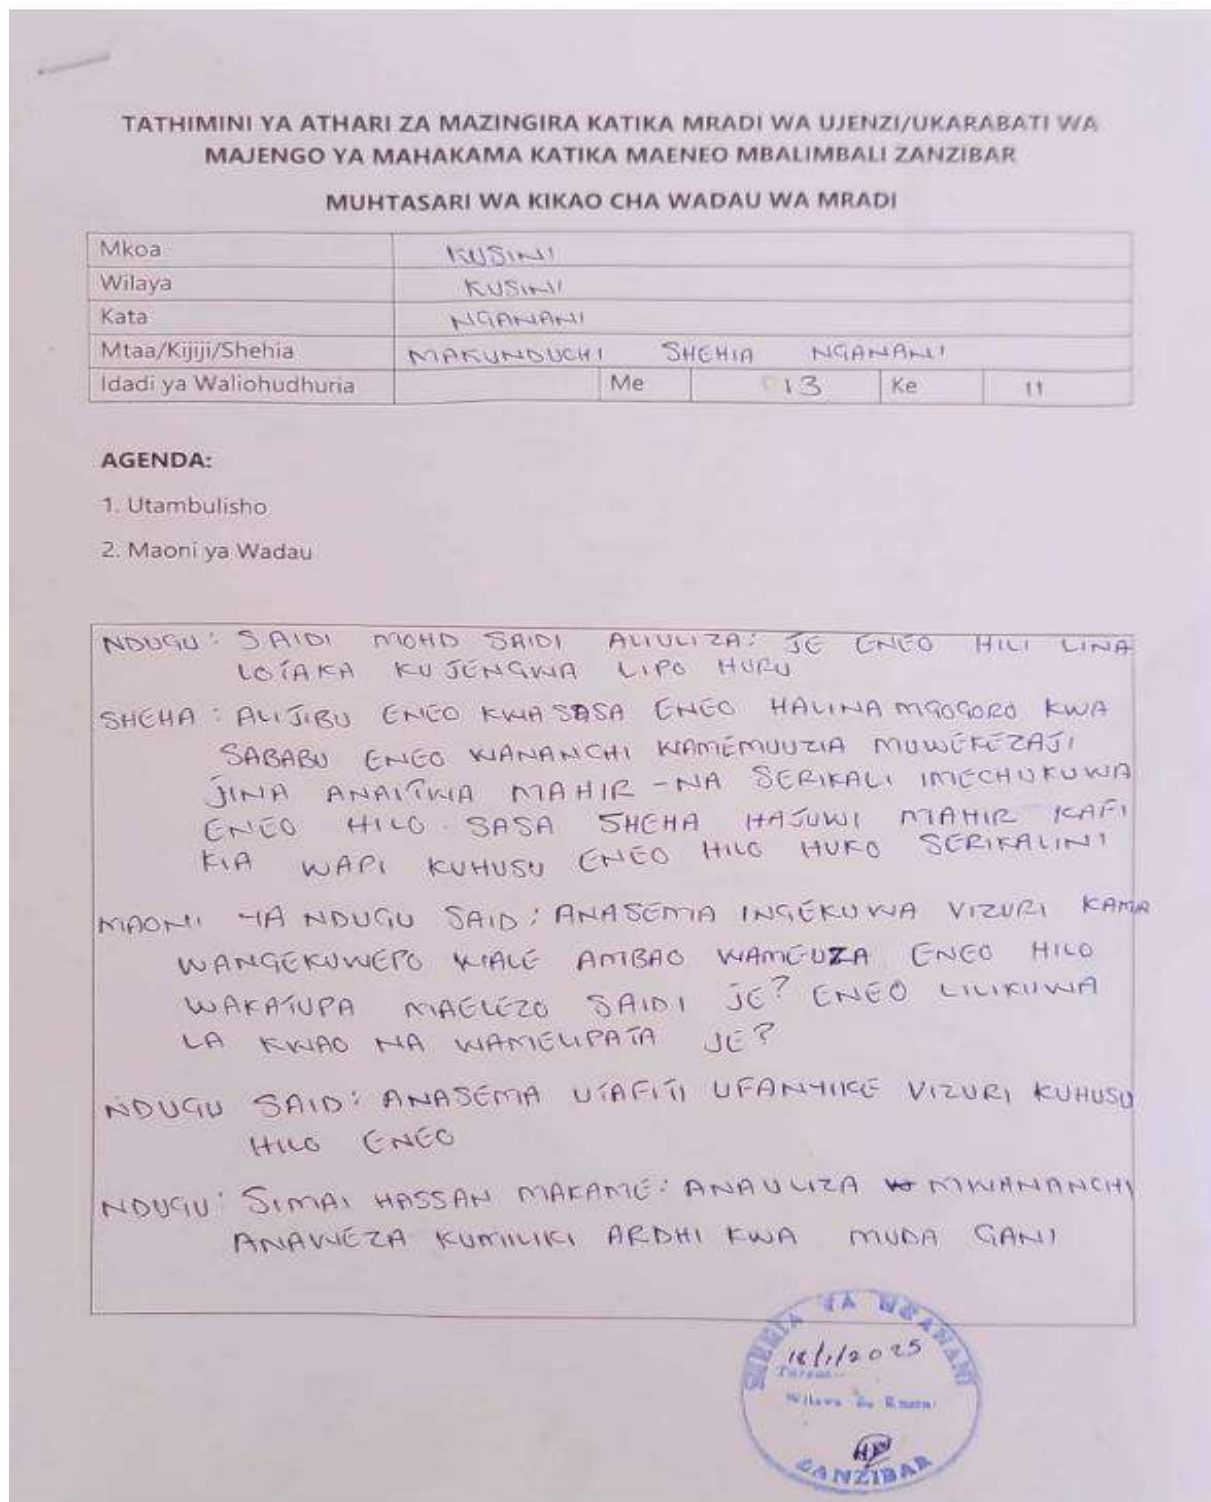 TATHIMINI YA ATHARI ZA MAZINGIRA KATIKA MRADI WA UJENZI/UKARABATI WA
MAJENGO YA MAHAKAMA KATIKA MAENEO MBALIMBALI ZANZIBAR
MUHTASARI WA KIKAO CHA WADAU WA MRADI
Mkoa KUSINI
Wilaya KUSINI
Kata NGANANI
Mtaa/Kijiji/Shehia MAKUNDUCHI SHEHIA NGANANI
Idadi ya Waliohudhuria Me 13 Ke 11
AGENDA:
1. Utambulisho
2. Maoni ya Wadau
NDUGU: SAIDI MOHD SAIDI ALIULIZA: JE ENEO HILI LINA
LOTAKA KUJENGWA LIPO HURU
SHEHA: ALIJIBU ENEO KWA SASA ENEO HALINA MGOGORO KWA
SABABU ENEO WANANCHI WAMEMUUZIA MUWEKEZAJI
JINA ANAITWA MAHIR - NA SERIKALI IMECHUKUWA
ENEO HILO. SASA SHEHA HAJUWI MAHIR KAFI
KIA WAPI KUHUSU ENEO HILO HUKO SERIKALINI
MAONI YA NDUGU SAID: ANASEMA INGEKUWA VIZURI KAMA
WANGEKUWEPO WALE AMBAO WAMEUZA ENEO HILO
WAKATUPA MAELEZO SAIDI JE? ENEO LILIKUWA
LA KWAO NA WAMELIPATA JE?
NDUGU SAID: ANASEMA UTAFITI UFANYIKE VIZURI KUHUSU
HILO ENEO
NDUGU: SIMAI HASSAN MAKAME: ANAULIZA MWANANCHI
ANAWEZA KUMILIKI ARDHI KWA MUDA GANI
SHEHIA YA NGANANI
18/1/2025
Wilaya Ya Kusini
ZANZIBAR